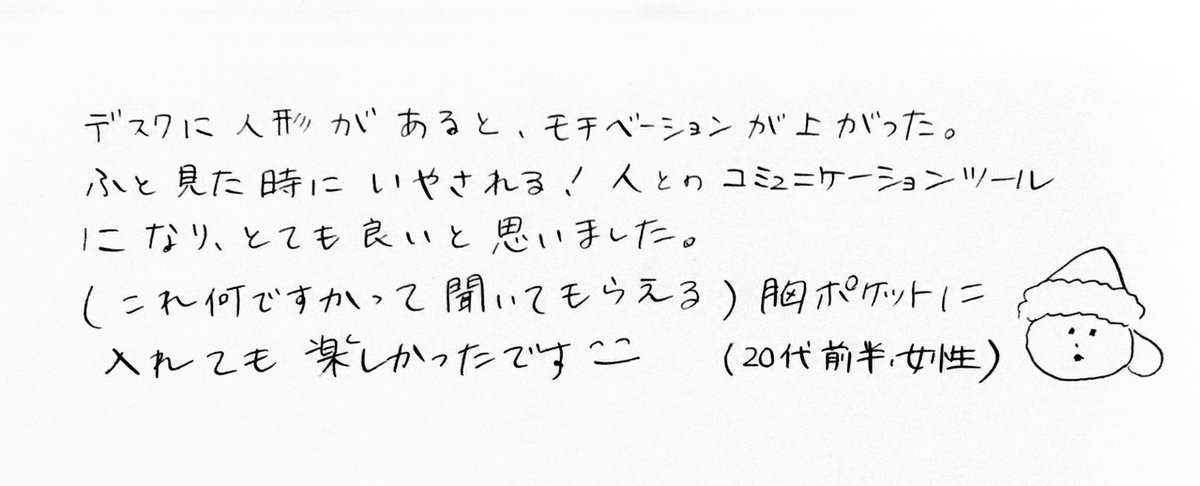 デスクに人形があると、モチベーションが上がった。
ふと見た時にいやされる!人とのコミュニケーションツール
になり、とても良いと思いました。
(これ何ですかって聞いてもらえる)胸ポケットに
入れても楽しかったです (20代前半、女性)